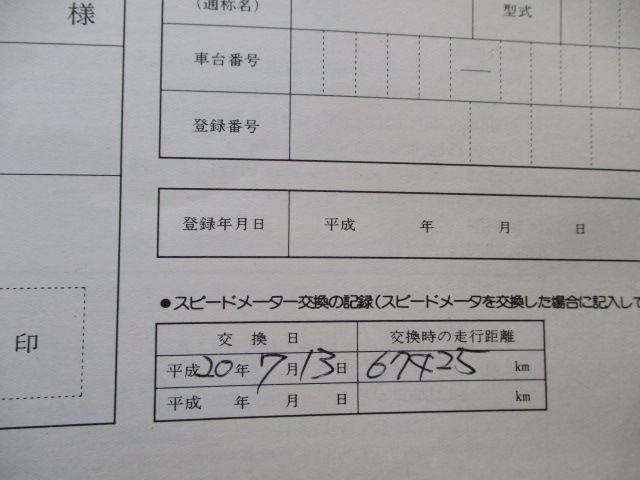 様
(通称名)
型式
車台番号
登録番号
登録年月日 平成 年 月 日
●スピードメーター交換の記録(スピードメータを交換した場合に記入して
印
交換日 交換時の走行距離
平成20年7月13日 67425 km
平成 年 月 日 km